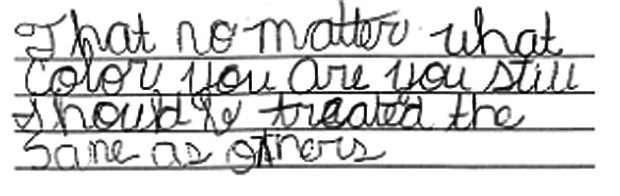 That no matter what
color you are you still
should be treated the
Same as others